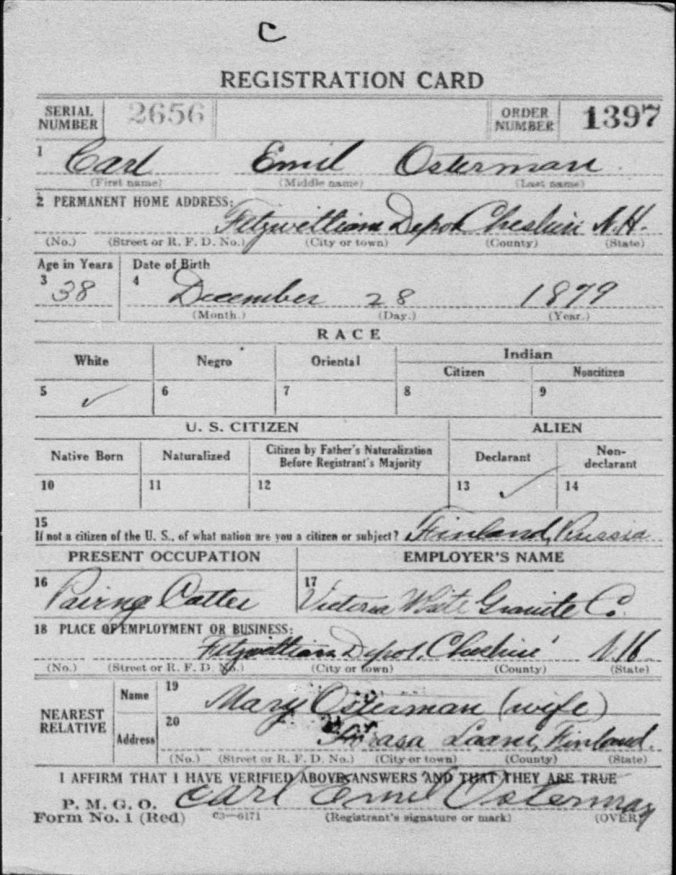 C
REGISTRATION CARD
SERIAL NUMBER 2656 ORDER NUMBER 1397
1 Carl Emil Osterman
(First name) (Middle name) (Last name)
2 PERMANENT HOME ADDRESS:
Fitzwilliam Depot Cheshire N.H.
(No.) (Street or R. F. D. No.) (City or town) (County) (State)
Age in Years Date of Birth
3 38 4 December 28 1879
(Month.) (Day.) (Year.)
RACE
White Negro Oriental Indian
Citizen Noncitizen
5 ✓ 6 7 8 9
U. S. CITIZEN ALIEN
Native Born Naturalized Citizen by Father's Naturalization Before Registrant's Majority Declarant Non-declarant
10 11 12 13 ✓ 14
15
If not a citizen of the U. S., of what nation are you a citizen or subject? Finland, Russia
PRESENT OCCUPATION EMPLOYER'S NAME
16 Paving Cutter 17 Victoria White Granite Co.
18 PLACE OF EMPLOYMENT OR BUSINESS:
Fitzwilliam Depot, Cheshire N.H.
(No.) (Street or R. F. D. No.) (City or town) (County) (State)
NEAREST RELATIVE
Name 19 Mary Osterman (wife)
Address 20 Laani, Finland.
(No.) (Street or R. F. D. No.) (City or town) (County) (State)
I AFFIRM THAT I HAVE VERIFIED ABOVE ANSWERS AND THAT THEY ARE TRUE
Carl Emil Osterman
P. M. G. O.
Form No. 1 (Red) C3—6171 (Registrant's signature or mark) (OVER)